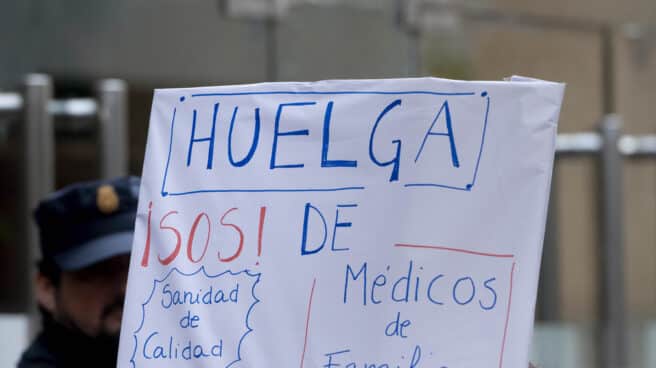 ¡HUELGA!
¡SOS! DE
Sanidad
de
Calidad
Médicos
de
Familia